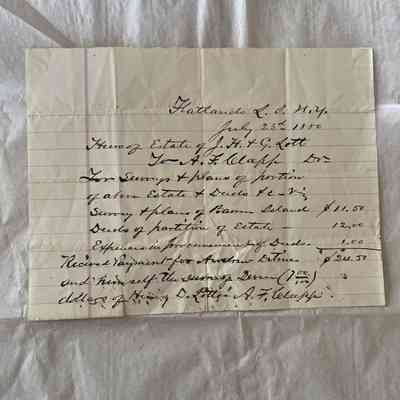 Flatlands L. I. N.Y.
July 23rd 1880
Heirs of Estate of J. H. & G. Lott
To A. F. Clapp Dr.
For Surveys & plans of portion
of above Estate & Deeds &c - Viz
Survey & plans of Island $11.50
Deeds of partition of Estate — 12.00
Expenses in procurement of Deeds 1.00
$24.50
Recieved Payment for Andrew Ditmas
and himself the sum of Seven (7 00/100)
dollars of Henry D. Lott A. F. Clapp